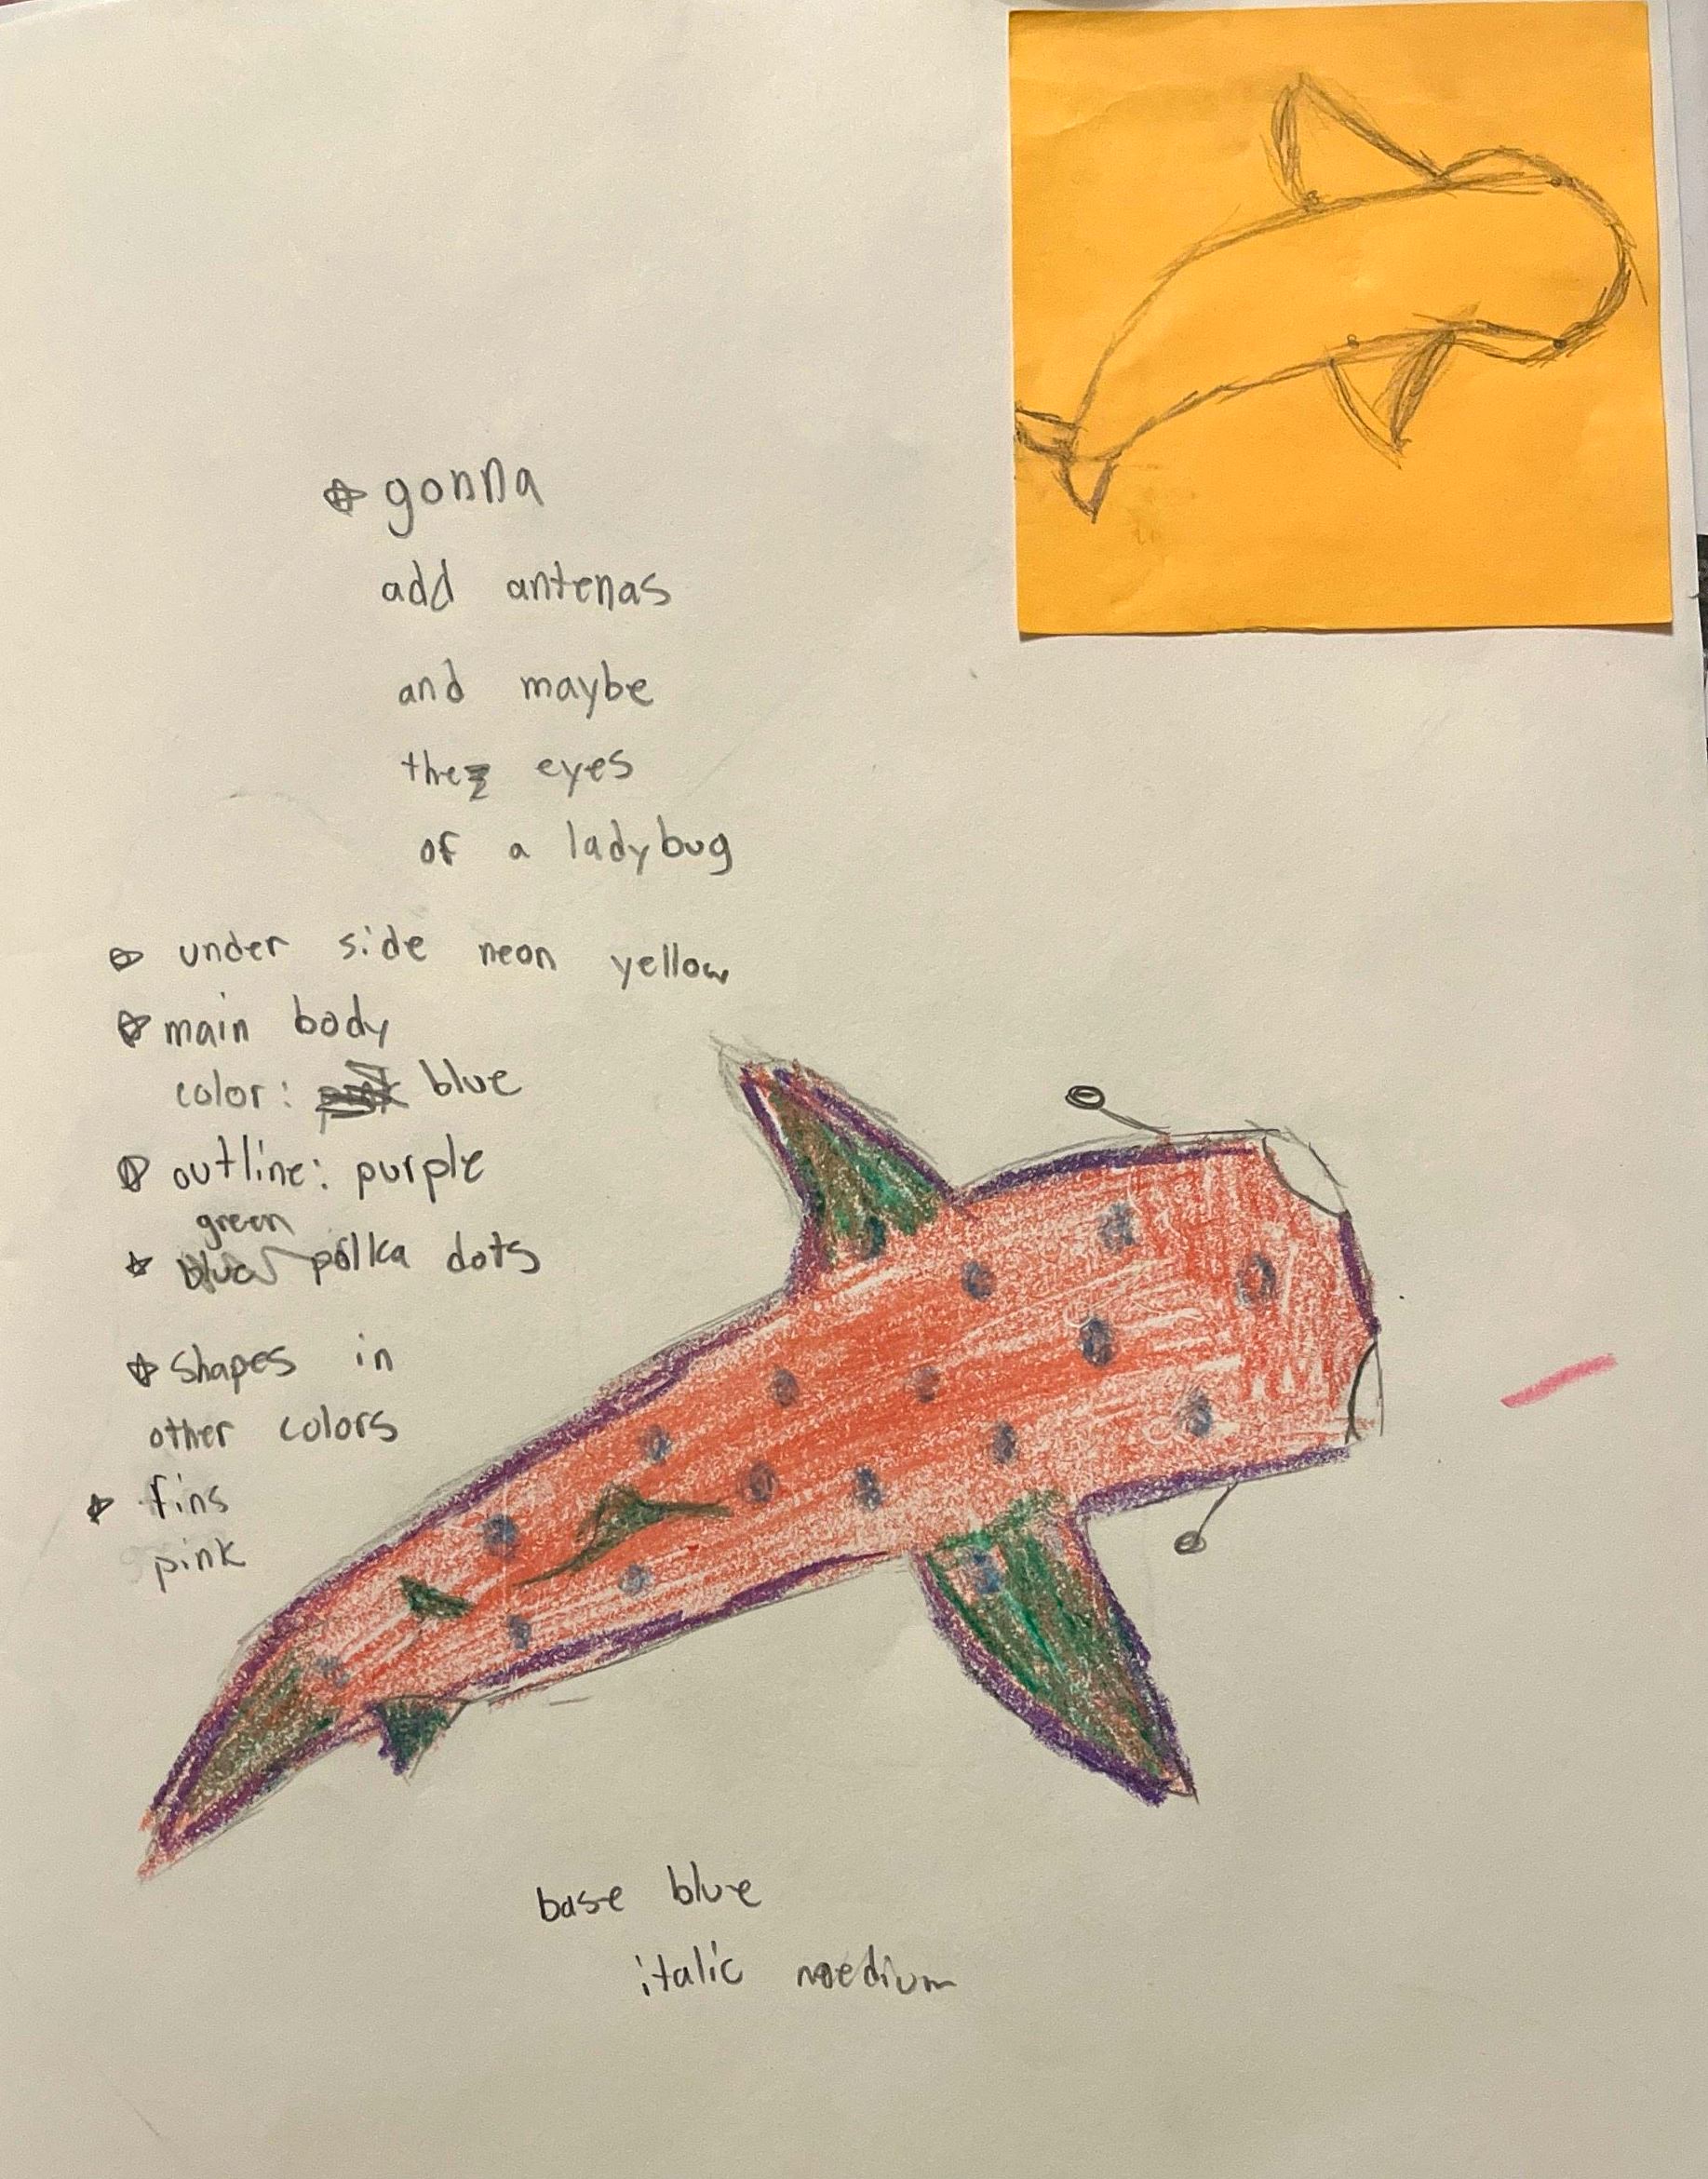 gonna
add antenas
and maybe
the eyes
of a ladybug
under side neon yellow
main body
color: blue
outline: purple
green
blue polka dots
shapes in
other colors
fins
pink
base blue
italic medium